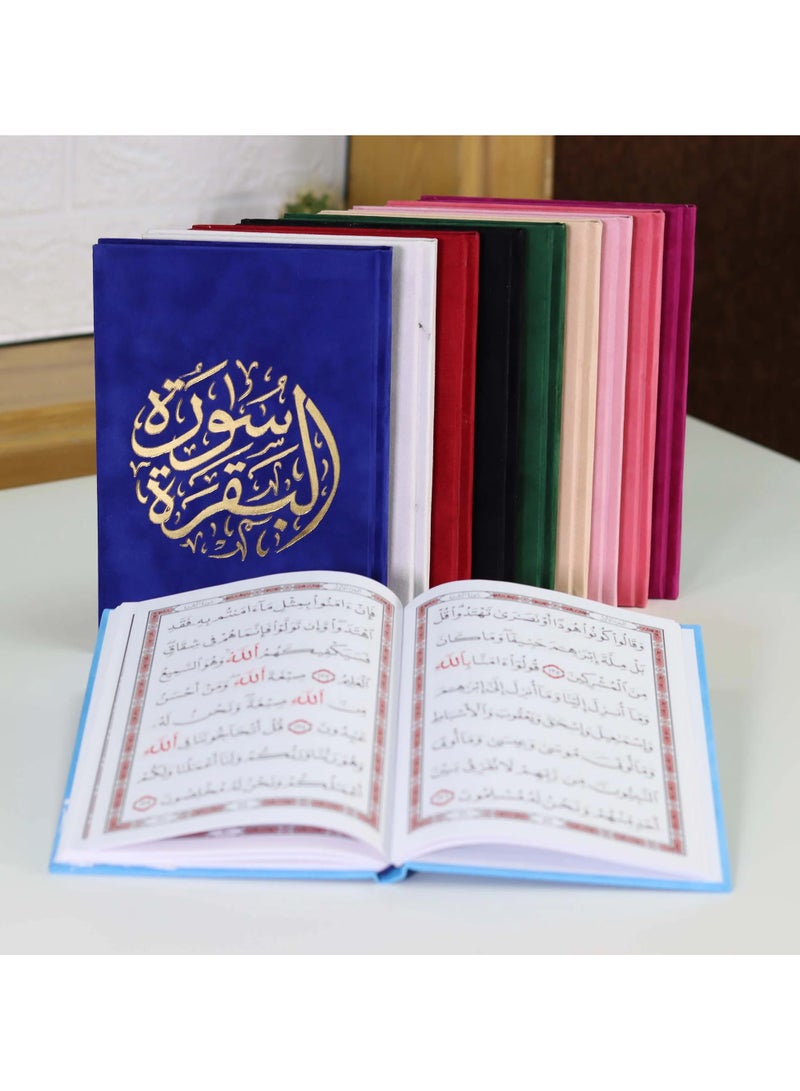 سورة
البقرة
سورة البقرة
وَقَالُوا۟ كُونُوا۟ هُودًا أَوْ نَصَٰرَىٰ تَهْتَدُوا۟ قُلْ
بَلْ مِلَّةَ إِبْرَٰهِـۧمَ حَنِيفًا وَمَا كَانَ
مِنَ ٱلْمُشْرِكِينَ ١٣٥ قُولُوٓا۟ ءَامَنَّا بِٱللَّهِ
وَمَآ أُنزِلَ إِلَيْنَا وَمَآ أُنزِلَ إِلَىٰٓ إِبْرَٰهِـۧمَ
وَإِسْمَٰعِيلَ وَإِسْحَٰقَ وَيَعْقُوبَ وَٱلْأَسْبَاطِ
وَمَآ أُوتِىَ مُوسَىٰ وَعِيسَىٰ وَمَآ أُوتِىَ
ٱلنَّبِيُّونَ مِن رَّبِّهِمْ لَا نُفَرِّقُ بَيْنَ
أَحَدٍ مِّنْهُمْ وَنَحْنُ لَهُۥ مُسْلِمُونَ ١٣٦
سورة البقرة
فَإِنْ ءَامَنُوا۟ بِمِثْلِ مَآ ءَامَنتُم بِهِۦ فَقَدِ
ٱهْتَدَوا۟ وَّإِن تَوَلَّوْا۟ فَإِنَّمَا هُمْ فِى شِقَاقٍ
فَسَيَكْفِيكَهُمُ ٱللَّهُ وَهُوَ ٱلسَّمِيعُ
ٱلْعَلِيمُ ١٣٧ صِبْغَةَ ٱللَّهِ وَمَنْ أَحْسَنُ
مِنَ ٱللَّهِ صِبْغَةً وَنَحْنُ لَهُۥ
عَٰبِدُونَ ١٣٨ قُلْ أَتُحَآجُّونَنَا فِى ٱللَّهِ
وَهُوَ رَبُّنَا وَرَبُّكُمْ وَلَنَآ أَعْمَٰلُنَا وَلَكُمْ
أَعْمَٰلُكُمْ وَنَحْنُ لَهُۥ مُخْلِصُونَ ١٣٩